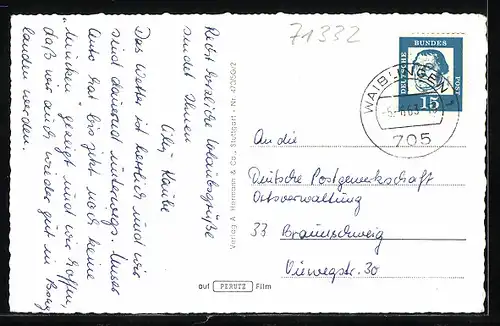 71332
DEUTSCHE
BUNDES
POST
15
WAIBLINGEN 1
705
Recht herzliche Urlaubsgrüße
sendet Ihnen
Lilli
Das Wetter ist herrlich und wir
sind dauernd unterwegs. Unser
Auto hat bis jetzt noch keine
"Mücken" gezeigt und wir hoffen,
daß wir auch wieder gut in
landen werden.
Verlag A. & Co., Stuttgart - Nr.
An die
Deutsche Postgewerkschaft
Ortsverwaltung
33 Braunschweig
Viewegstr. 30
auf PERUTZ Film